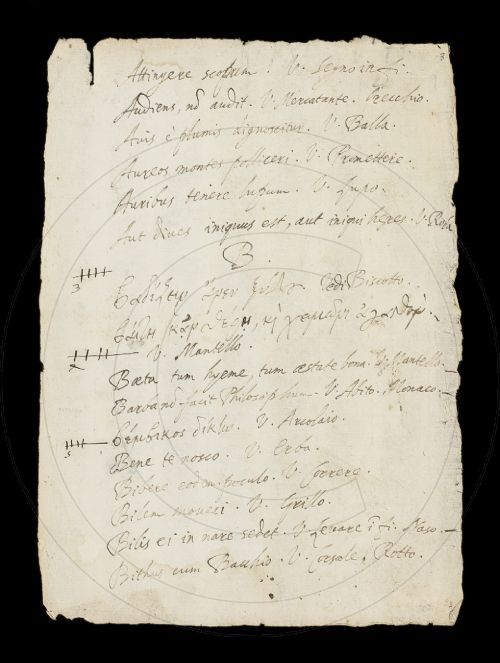 Attingere scopum. V. Segno in fi.
Audiens, nō audit. V. Mercatante. Vecchio.
Avis è plumis dignoscitur. V. Balla.
Aureos montes polliceri. V. Promettere.
Auribus tenere lupum. V. Lupo.
Aut dives iniquus est, aut iniqui heres. V. Roba
B.
3
ἄνευ ξύλου Vedi Biscotto.
V. Mantello.
2
Baeta tum hyeme, tum aestate bona. V. Mantello
Barba nō facit Philosophum. V. Abito. Monaco.
V. Arcolaio.
5
Bene te nosco. V. Erba.
Bibere eodem poculo. V. Correre.
Bilem moveri. V. Grillo.
Bilis ei in nare sedet. V. Levare ī fi. Naso.
Bithus cum Bacchio. V. Casale. Rotto.